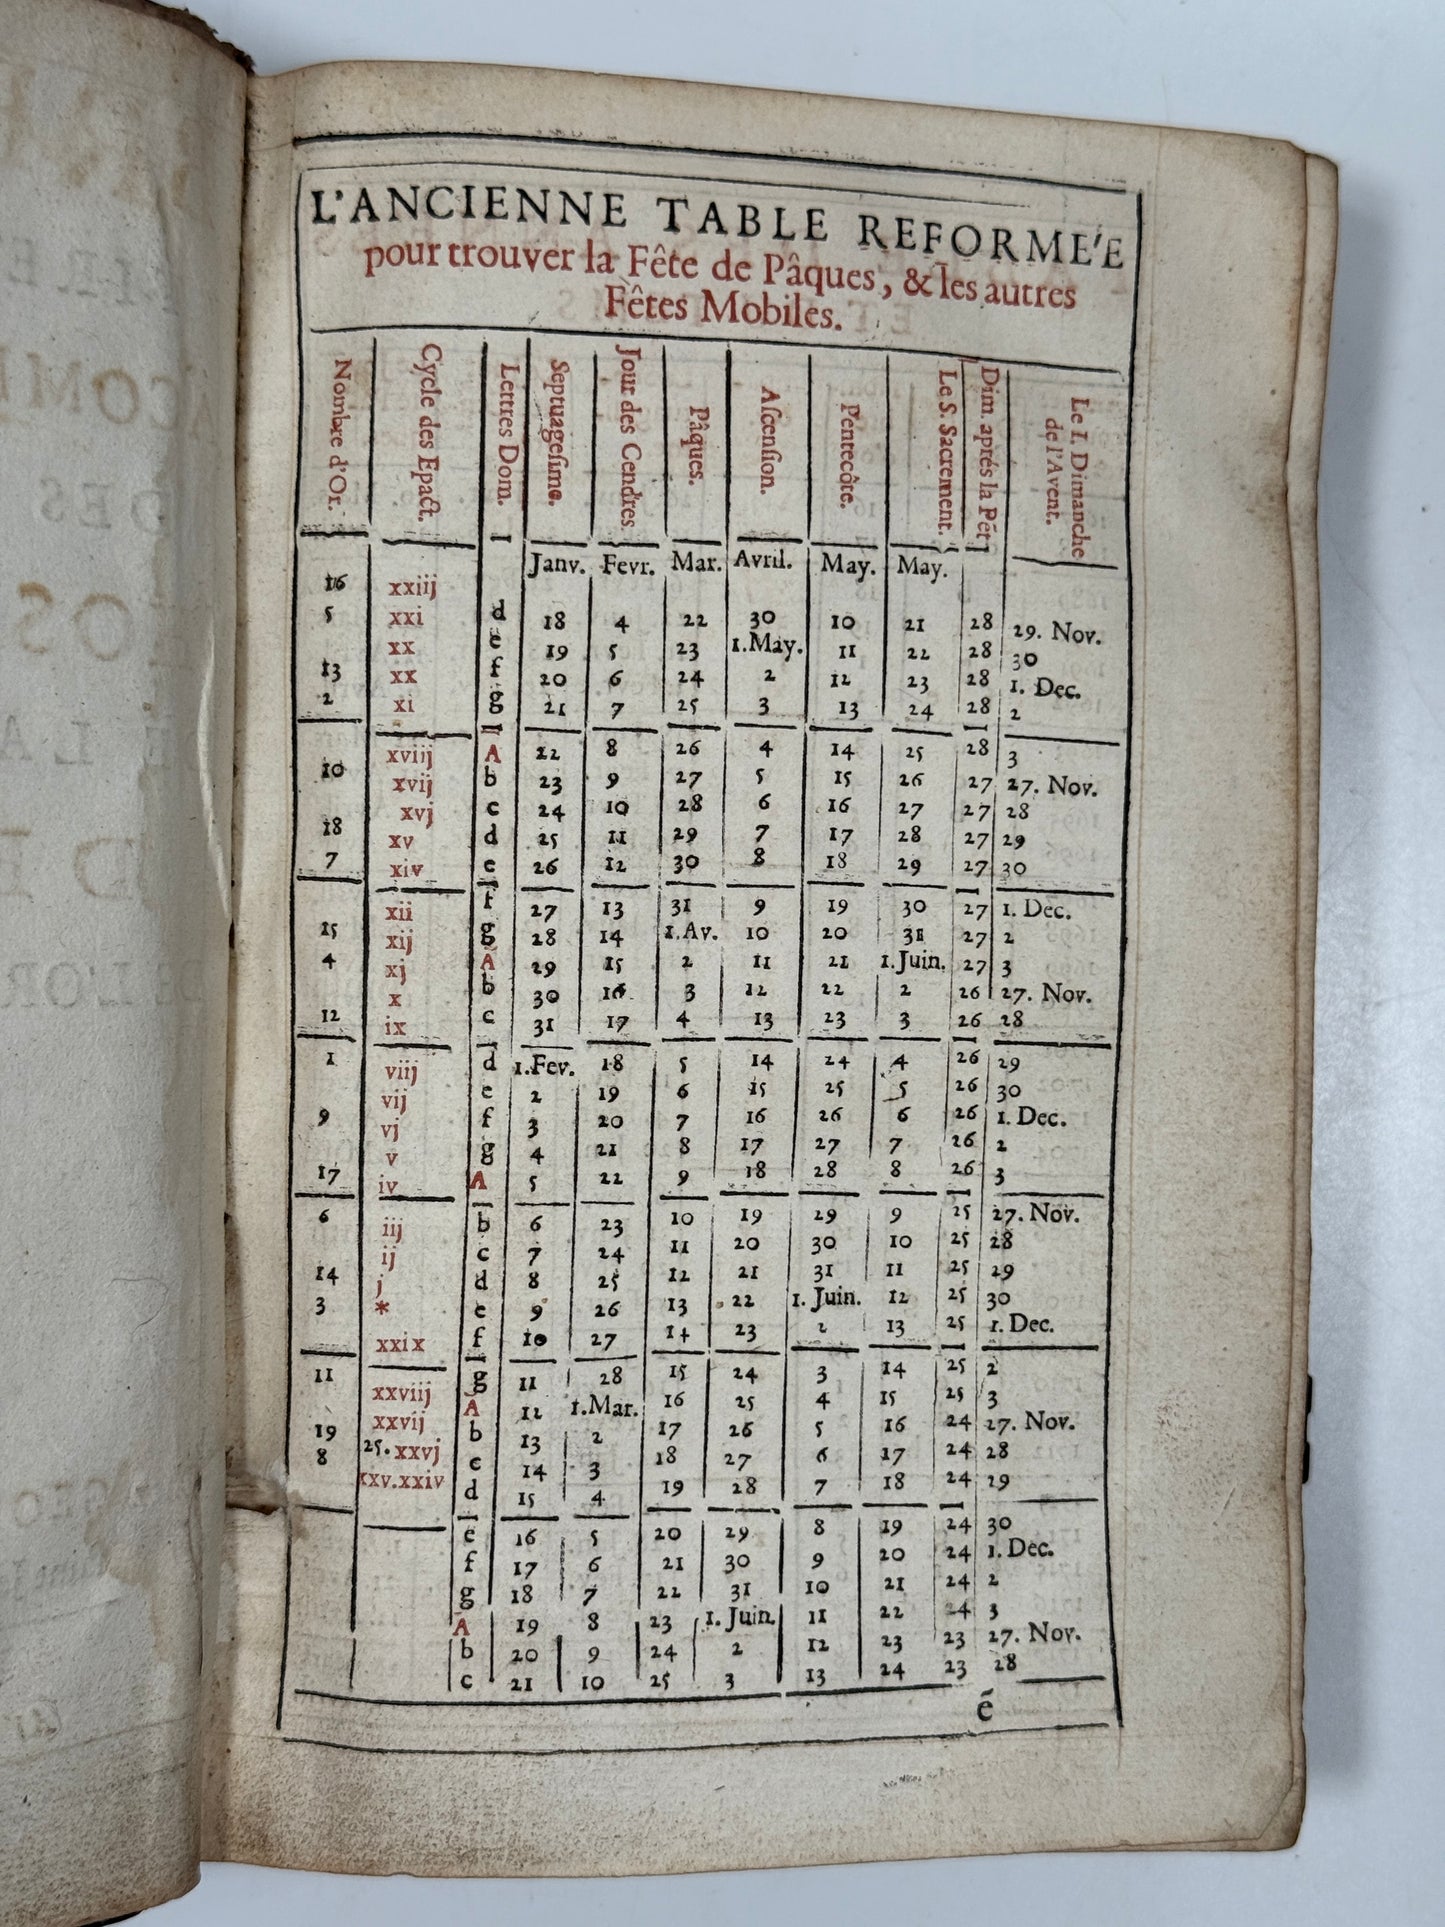 L'ANCIENNE TABLE REFORME'E
pour trouver la Fête de Pâques, & les autres
Fêtes Mobiles.
Nombre d'Or. Cycle des Epact. Lettres Dom. Septuageſime. Jour des Cendres. Pâques. Aſcenſion. Pentecôte. Le S. Sacrement. Dim. aprés la Pẽt Le I. Dimanche de l'Avent.
Janv. Fevr. Mar. Avril. May. May.
16 xxiij
5 xxi d 18 4 22 30 10 21 28 29. Nov.
xx e 19 5 23 1.May. 11 22 28 30
13 xx f 20 6 24 2 12 23 28 1. Dec.
2 xi g 21 7 25 3 13 24 28 2
xviij A 22 8 26 4 14 25 28 3
10 xvij b 23 9 27 5 15 26 27 27. Nov.
xvj c 24 10 28 6 16 27 27 28
18 xv d 25 11 29 7 17 28 27 29
7 xiv e 26 12 30 8 18 29 27 30
xii f 27 13 31 9 19 30 27 1. Dec.
15 xij g 28 14 1.Av. 10 20 31 27 2
4 xj A 29 15 2 11 21 1.Juin. 27 3
x b 30 16 3 12 22 2 26 27. Nov.
12 ix c 31 17 4 13 23 3 26 28
1 viij d 1.Fev. 18 5 14 24 4 26 29
vij e 2 19 6 15 25 5 26 30
9 vj f 3 20 7 16 26 6 26 1. Dec.
v g 4 21 8 17 27 7 26 2
17 iv A 5 22 9 18 28 8 26 3
6 iij b 6 23 10 19 29 9 25 27. Nov.
ij c 7 24 11 20 30 10 25 28
14 j d 8 25 12 21 31 11 25 29
3 * e 9 26 13 22 1. Juin. 12 25 30
xxix f 10 27 14 23 2 13 25 1. Dec.
11 xxviij g 11 28 15 24 3 14 25 2
xxvij A 12 1.Mar. 16 25 4 15 25 3
19 25.xxvj b 13 2 17 26 5 16 24 27. Nov.
8 xxv.xxiv c 14 3 18 27 6 17 24 28
d 15 4 19 28 7 18 24 29
e 16 5 20 29 8 19 24 30
f 17 6 21 30 9 20 24 1. Dec.
g 18 7 22 31 10 21 24 2
A 19 8 23 1. Juin. 11 22 24 3
b 20 9 24 2 12 23 23 27. Nov.
c 21 10 25 3 13 24 23 28
ẽ